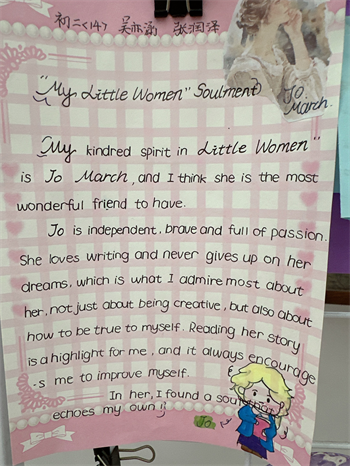 初二<14> 吴亦涵 张润泽
"My Little Women" Soulment
Jo
March.
"My kindred spirit in Little Women"
is Jo March, and I think she is the most
wonderful friend to have.
Jo is independent, brave and full of passion.
She loves writing and never gives up on her
dreams, which is what I admire most about
her, not just about being creative, but also about
how to be true to myself. Reading her story
is a highlight for me, and it always encourage
s me to improve myself.
In her, I found a soul that
echoes my own!
Jo